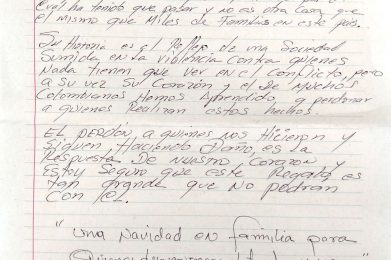 cual ha tenido que pasar y no es otra cosa que
el mismo que Miles de Familias en este país.
Su Historia es el Reflejo de una Sociedad
Sumida en la violencia contra quienes
Nada tienen que ver en el Conflicto, pero
a su vez su Corazón y el de Muchos
Colombianos Hemos Aprendido a perdonar
a quienes Realizan estos hechos.
EL PERDÓN, a quienes nos Hicieron y
Siguen, Haciendo Daño, es la
Respuesta De Nuestro, Corazón y
Estoy Seguro que este Regalo es
tan grande que No podrán
Con él.
"Una Navidad en familia para